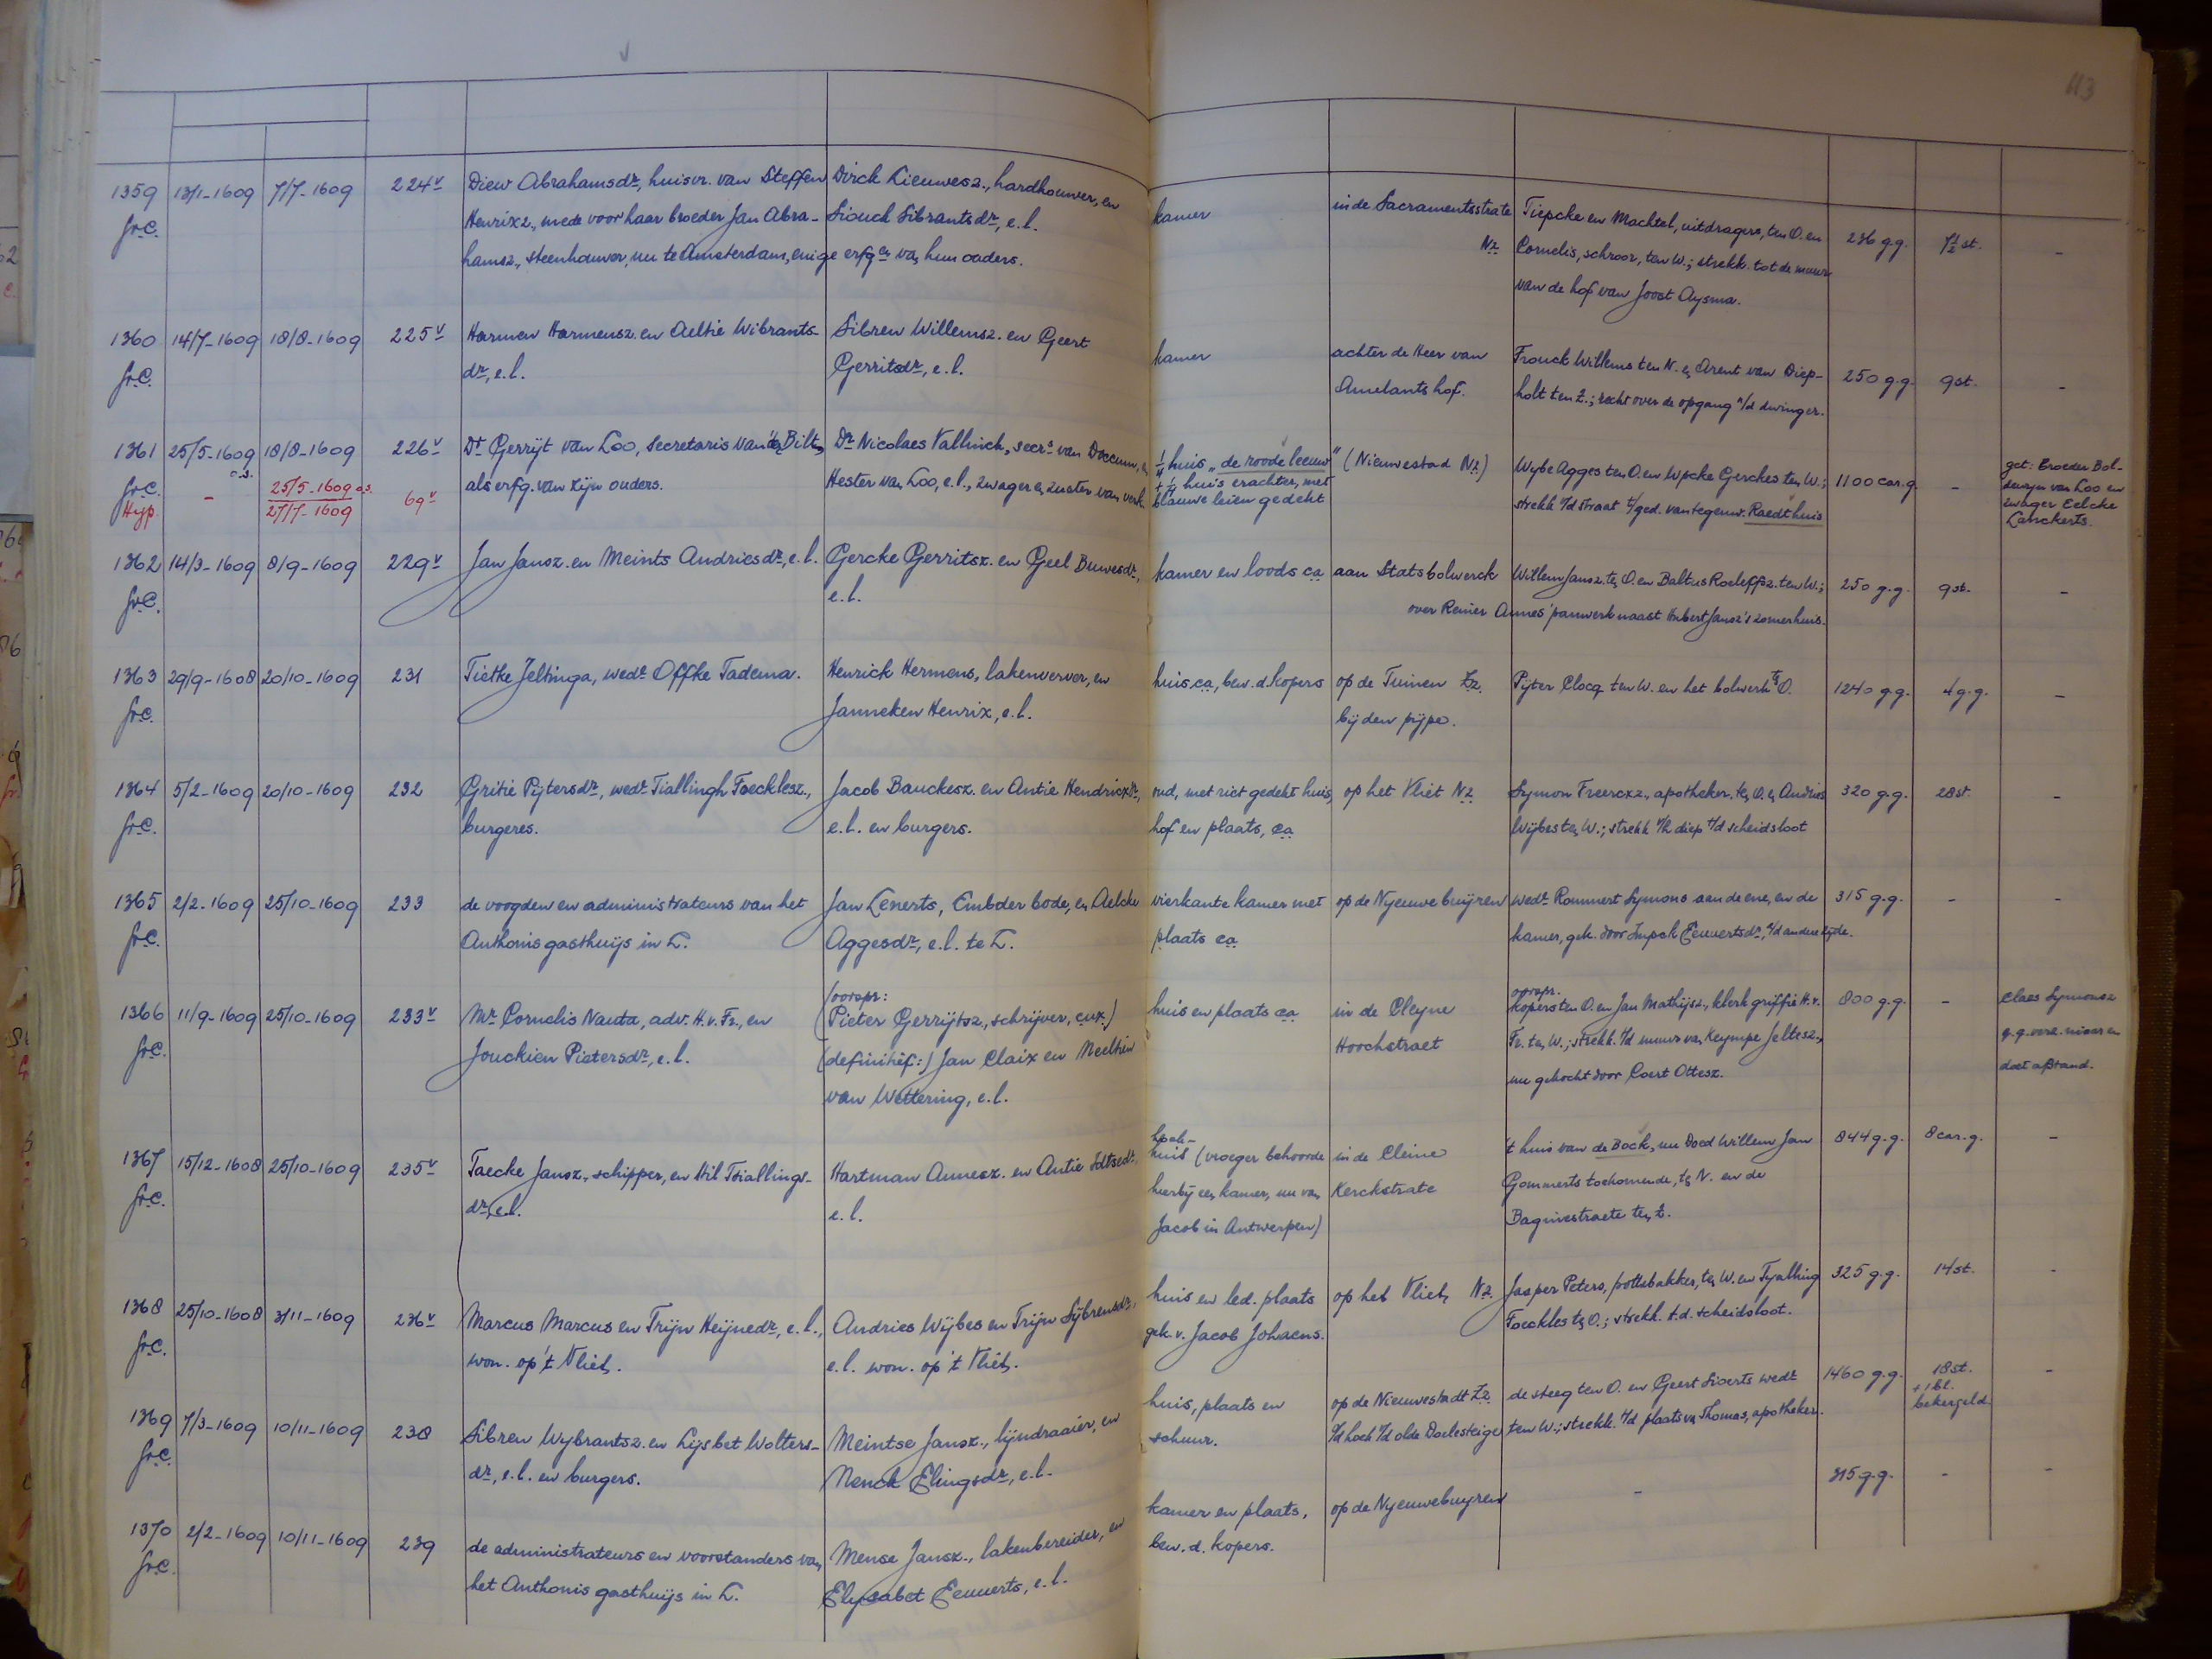 113
1359 13/1-1609 7/7-1609 224v Diew Abrahamsdr, huisvr. van Steffen Dirck Lieuwesz., hardhouwer, en kamer in de Sacramentsstrate Tiepcke en Machtel, uitdragers, ten O. en 236 g.g. 7½ st. -
fr.C. Henrixz., mede voor haar broeder Jan Abra- Siouck Sibrantsdr, e.l. Nz Cornelis, schroor, ten W.; strekk. tot de muur
hamsz., steenhouwer, nu te Amsterdam, enige erfgen van hun ouders. van de hof van Joost Aysma.
1360 14/7-1609 18/8-1609 225v Harmen Harmensz. en Aeltie Wibrants- Sibren Willemsz. en Geert kamer achter de Heer van Frouck Willems ten N. en Arent van Diep- 250 g.g. 9 st. -
fr.C. dr, e.l. Gerritsdr, e.l. Amelants hof. holt ten Z.; recht over de opgang a/d dwinger.
1361 25/5-1609 o.s. 18/8-1609 226v Dr Gerrijt van Loo, Secretaris van de Bilt, Dr Nicolaes Vallinck, secrs van Doccum, en ¼ huis "de roode leeuw" (Nieuwestad Nz) Wybe Agges ten O. en Wpcke Gerckes ten W.; 1100 car.g. - get: Broeder Bol-
fr.C. - 25/5-1609 o.s. als erfg. van zijn ouders. Hester van Loo, e.l., zwager en zuster van verk. huis erachter, met strekk v/d straat t/ged. van tegenw. Raedthuis dewyn van Loo en
Hyp. 27/7-1609 69v blauwe leien gedekt zwager Eelcke
Lanckerts.
1362 14/3-1609 8/9-1609 229v Jan Jansz. en Meints Andriesdr, e.l. Gercke Gerritsz. en Geel Buwesdr, kamer en loods ca aan Statsbolwerck Willem Jansz. ten O. en Baltus Roeleffsz. ten W.; 250 g.g. 9 st. -
fr.C. e.l. over Reiner Annes' panwerk naast Hubert Jansz's zomerhuis.
1363 29/9-1608 20/10-1609 231 Tietke Jeltinga, wedr Offke Tadema. Henrick Hermens, lakenverver, en huis, ca, bew. d. kopers op de Tuinen Zz. Pijter Clocq ten W. en het bolwerk ten O. 1240 g.g. 4 g.g. -
fr.C. Janneken Henrix, e.l. bij den pijpe.
1364 5/2-1609 20/10-1609 232 Gritie Pijtersdr, wedr Tiallingh Foecklesz., Jacob Bauckesz. en Antie Hendricxdr, oud, met riet gedekt huis, op het Vliet Nz Symon Freercxz., apotheker, ten O. en Andries 320 g.g. 28 st. -
fr.C. burgeres. e.l. en burgers. hof en plaats, ca Wijbes ten W.; strekk v/h diep t/d scheidsloot
1365 2/2-1609 25/10-1609 233 de voogden en administrateurs van het Jan Lenerts, Embder bode, en Aelcke vierkante kamer met op de Nyeuwe buijren wedr Rommert Symons aan de ene, en de 315 g.g. - -
fr.C. Anthonis gasthuijs in L. Aggesdr, e.l. te L. plaats ca kamer, gek. door Impck Eeuwertsdr, a/d andere zijde.
1366 11/9-1609 25/10-1609 233v Mr Cornelis Nauta, adv. H.v.Fr., en (oorspr: huis en plaats ca in de Cleyne oorspr. 800 g.g. - Claes Symonsz
fr.C. Jouckien Pietersdr, e.l. (Pieter Gerrijtsz., schrijver, c.ux.) Hoochstraet kopers ten O. en Jan Mathijsz., klerk griffie H.v.
(definitief:) Jan Claix en Neeltien Fr. ten W.; strekk. t/d muur van Keympe Jeltesz.,
van Wettering, e.l. nu gekocht door Coert Ottesz. doet afstand.
1367 15/12-1608 25/10-1609 235v Taecke Jansz., schipper, en Hil Tsiallings- Hartman Annesz. en Antie Idtsedr. hoek- huis (vroeger behoorde in de Cleine 't huis van de Bock, nu Doed Willem Jan 844 g.g. 8 car.g. -
fr.C. dr, e.l. e.l. hierbij een kamer, nu van Kerckstrate Gommerts toekomende, ten N. en de
Jacob in Antwerpen) Baginestraete ten Z.
1368 25/10-1608 3/11-1609 236v Marcus Marcus en Trijn Heijnedr, e.l., Andries Wijbes en Trijn Sijbrensdr, huis en led. plaats op het Vliet, Nz. Jasper Peters, pottebakker, ten W. en Tyalling 325 g.g. 14 st. -
fr.C. won. op 't Vliet. e.l. won. op 't Vliet. gek. v. Jacob Johaens. Foeckles ten O.; strekk. t.d. scheidsloot.
1369 7/3-1609 10/11-1609 238 Sibren Wybrantsz. en Lijsbet Wolters- Meintse Jansz., lijndraaier, en huis, plaats en op de Nieuwestadt Zz de steeg ten O. en Geert Sioerts wedr 1460 g.g. 18 st. -
fr.C. dr, e.l. en burgers. Nenck Elingsdr, e.l. schuur. o/d hoek v/d olde Doelesteige ten W.; strekk. t/d plaats van Thomas, apotheker. bekergeld.
1370 2/2-1609 10/11-1609 239 de administrateurs en voorstanders van Mense Jansz., lakenbereider, en kamer en plaats, op de Nyeuwebuyren - 315 g.g. - -
fr.C. het Anthonis gasthuijs in L. Elysabet Eeuwerts, e.l. bew. d. kopers.